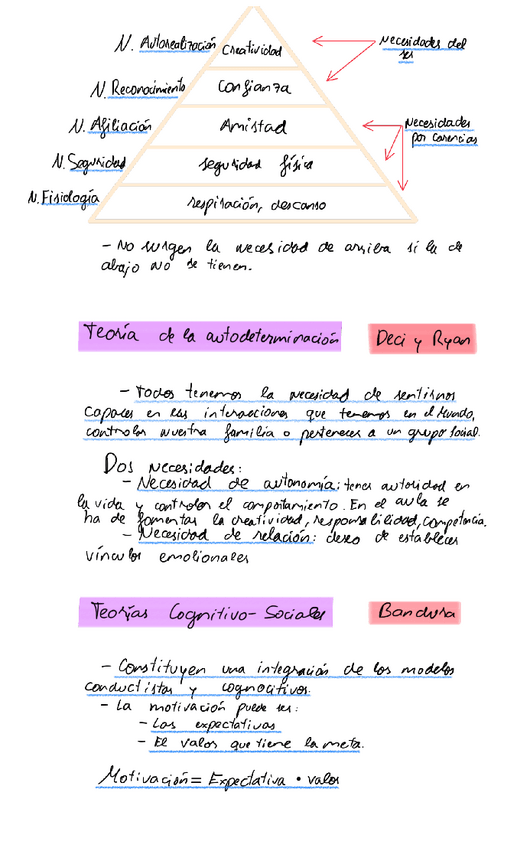 N. Autorealización
Creatividad
Necesidades del
ser
N. Reconocimiento
Confianza
N. Afiliación
Amistad
Necesidades
por carencias
N. Seguridad
seguridad física
N. Fisiología
respiración, descanso
- No surgen la necesidad de arriba si la de
abajo no se tienen.
Teoría de la autodeterminación
Deci y Ryan
- Todos tenemos la necesidad de sentirnos
capaces en las interacciones que tenemos en el Mundo,
controlar nuestra familia o pertenecer a un grupo social.
Dos necesidades:
- Necesidad de autonomía: tener autoridad en
la vida y controlar el comportamiento. En el aula se
ha de fomentar la creatividad, responsabilidad, competencia.
- Necesidad de relación: deseo de establecer
vínculos emocionales
Teorías Cognitivo-Sociales
Bandura
- Constituyen una integración de los modelos
conductistas y cognocitivos.
- La motivación puede ser:
- Las expectativas
- El valor que tiene la meta.
Motivación = Expectativa • valor